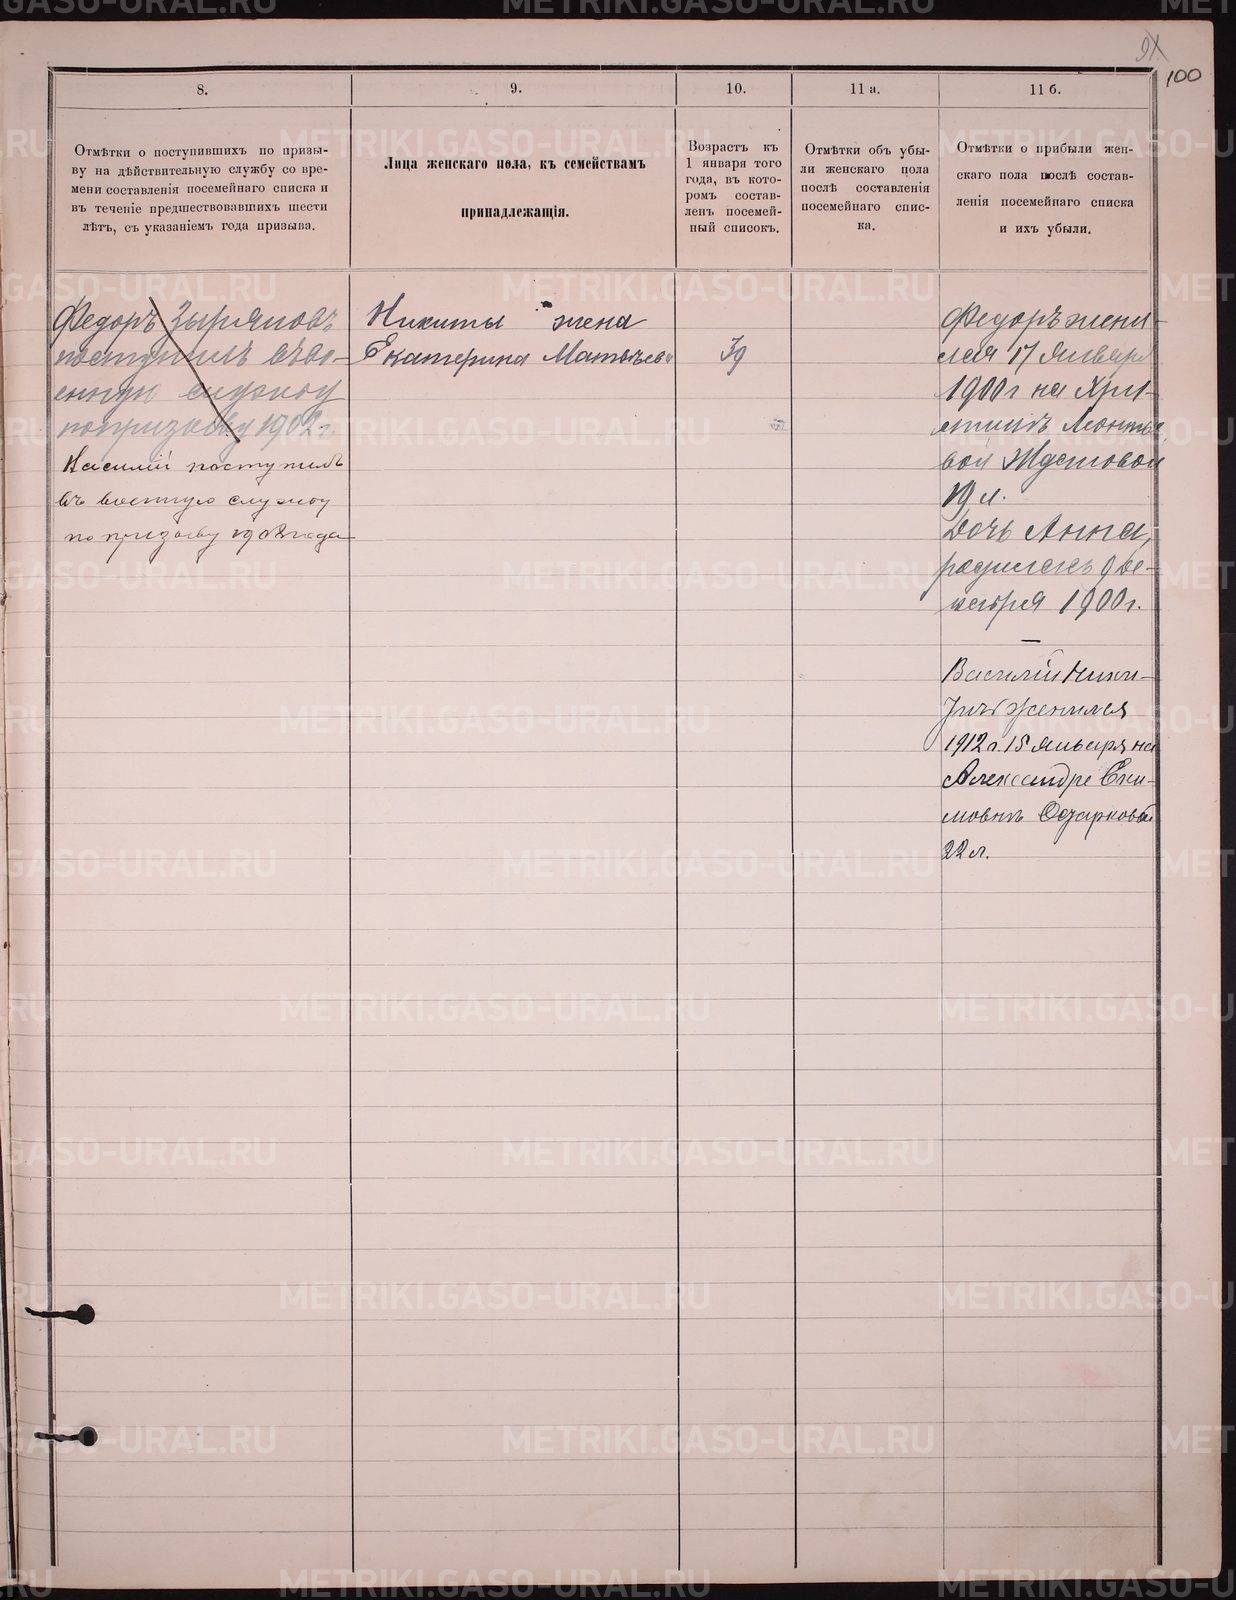 91.
100
8.
9.
10.
11 а.
11 б.
Отмѣтки о поступившихъ по призы-
ву на дѣйствительную службу со вре-
мени составленія посемейнаго списка и
въ теченіе предшествовавшихъ шести
лѣтъ, съ указаніемъ года призыва.
Лица женскаго пола, къ семействамъ
принадлежащія.
Возрастъ къ
1 января того
года, въ кото-
ромъ состав-
ленъ посемей-
ный списокъ.
Отмѣтки объ убы-
ли женскаго пола
послѣ составленія
посемейнаго спис-
ка.
Отмѣтки о прибыли жен-
скаго пола послѣ состав-
ленія посемейнаго списка
и ихъ убыли.
Федоръ Зыряновъ
поступилъ въ во-
енную службу
по призыву 1902 г.
Василій поступилъ
въ военную службу
по призыву 1908 года
Никиты жена
Екатерина Матвѣева
39
Федоръ жени-
лся 17 Января
1900 г на Хри-
стинѣ Леонтье
вой
19 л.
Дочь Анна,
родилась 9 де-
кабря 1900 г.
Василій Ники-
тичъ женился
1912 г. 15 января на
Александре Еки-
мовнѣ
22 л.
METRIKI.GASO-URAL.RU